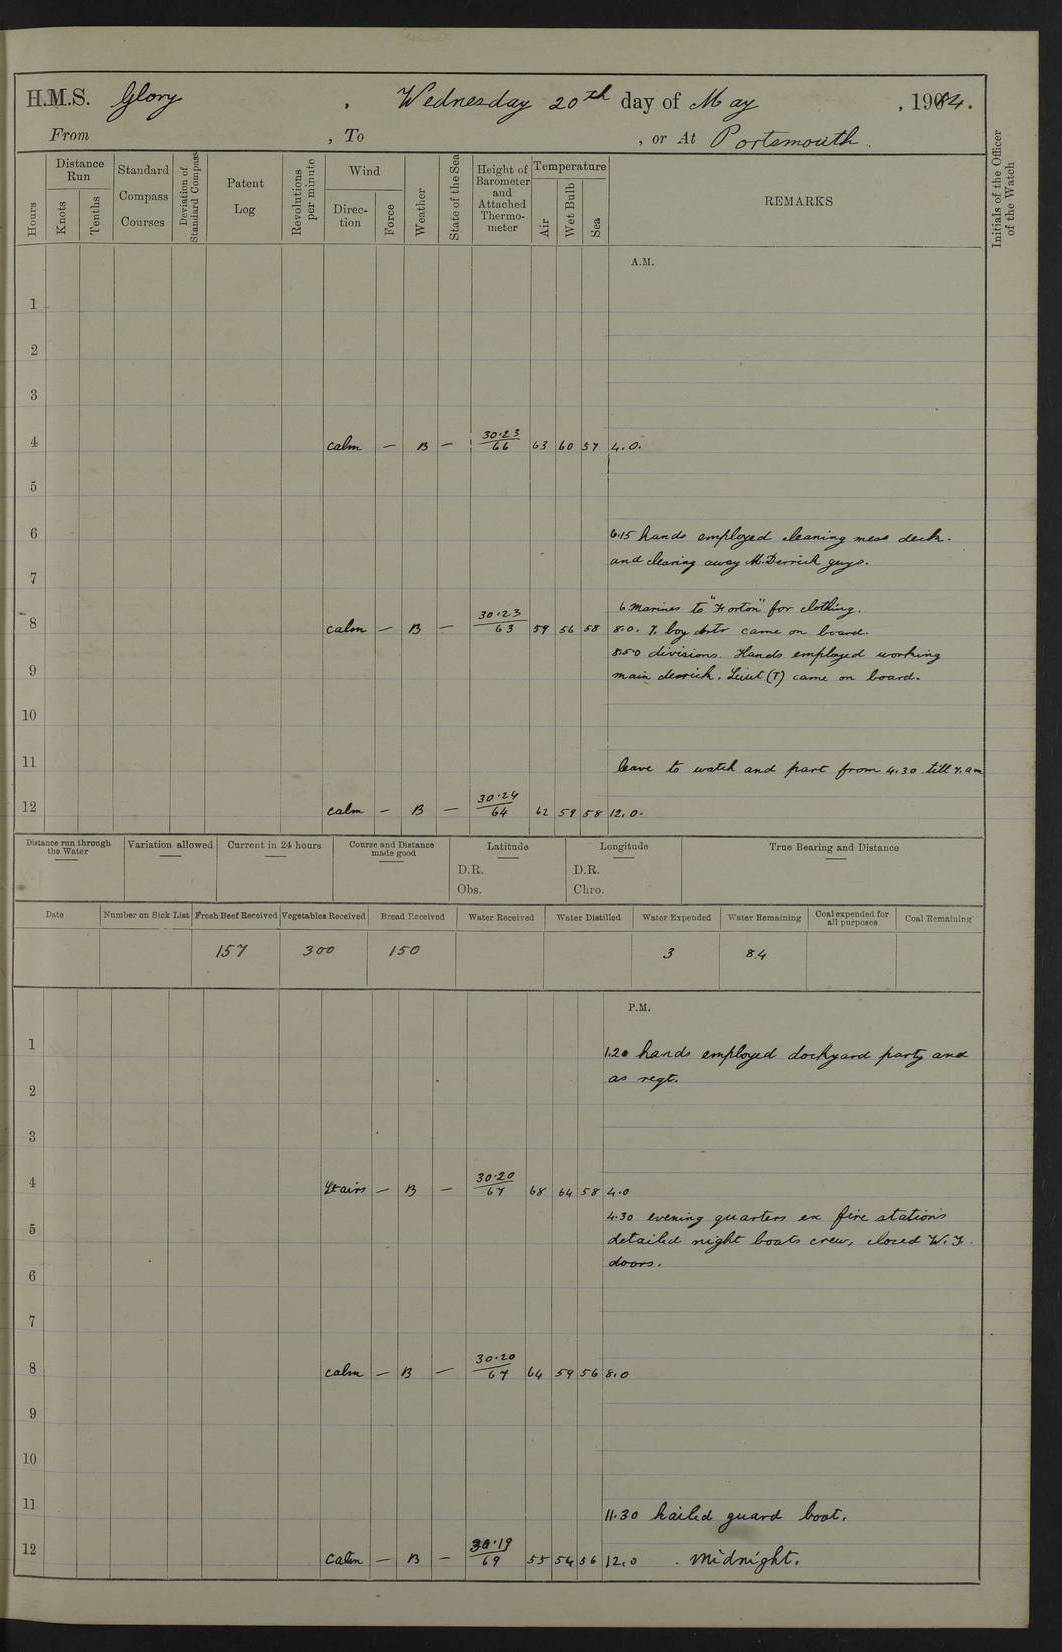 H.M.S. Glory, Wednesday 20th day of May, 1914.
From , To , or At Portsmouth.
Hours
Distance Run
Knots
Tenths
Standard Compass Courses
Deviation of Standard Compass
Patent Log
Revolutions per minute
Wind
Direction
Force
Weather
State of the Sea
Height of Barometer and Attached Thermometer
Temperature
Air
Wet Bulb
Sea
REMARKS
Initials of the Officer of the Watch
A.M.
1
2
3
4 calm — B — 30.23/66 63 60 57 4.0.
5
6 6.15 hands employed cleaning mess deck.
and clearing away M. Derrick guys.
7
6 Marines to "Forton" for clothing.
8 calm — B — 30.23/63 59 56 58 8.0. 7. boy artr came on board.
8.50 divisions. Hands employed working
9 main derrick. Lieut (T) came on board.
10
11 leave to watch and part from 4.30 till 7. am
12 calm — B — 30.24/64 62 59 58 12.0.
Distance run through the Water
Variation allowed
Current in 24 hours
Course and Distance made good
Latitude
D.R.
Obs.
Longitude
D.R.
Chro.
True Bearing and Distance
Date
Number on Sick List
Fresh Beef Received
Vegetables Received
Bread Received
Water Received
Water Distilled
Water Expended
Water Remaining
Coal expended for all purposes
Coal Remaining
157 300 150 3 84
P.M.
1 1.20 hands employed dockyard party and
as reqt.
2
3
4 Lt airs — B — 30.20/67 68 64 58 4.0
4.30 evening quarters ex fire stations
5 detailed night boats crew, closed W.T.
doors.
6
7
8 calm — B — 30.20/67 64 59 56 8.0
9
10
11 11.30 hailed guard boat.
12 Calm — B — 30.19/69 55 54 56 12.0 . Midnight.